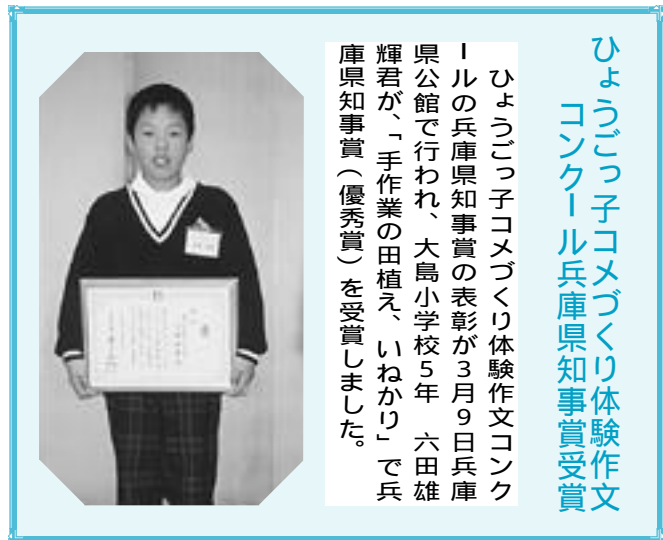 ひょうごっ子コメづくり体験作文
コンクール兵庫県知事賞受賞
ひょうごっ子コメづくり体験作文コンク
ールの兵庫県知事賞の表彰が3月9日兵庫
県公館で行われ、大島小学校5年　六田雄
輝君が、「手作業の田植え、いねかり」で兵
庫県知事賞（優秀賞）を受賞しました。